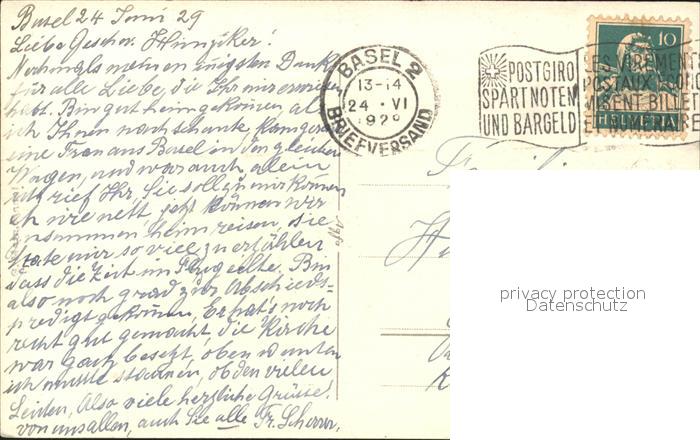 Basel 24 Juni 29
Liebe Geschw. Hunziker!
Nochmals meinen innigsten Dank
für alle Liebe, die Ihr mir erwiesen
habt. Bin gut heimgekommen, als
ich Ihnen nach schaute,
eine Frau aus Basel in den gleichen
Wagen, und war auch allein
rief Ihr, Sie soll zu mir kommen
wie nett, jetzt können wir
zusammen heim reisen, sie
hatte mir so viel zu erzählen
dass die Zeit im Flug eilte. Bin
also noch grad zur Abschieds-
predigt gekommen, Er hat's noch
recht gut gemacht, die Kirche
war ganz besetzt, oben u unten
ich musste staunen, ob den vielen
Leuten, Also viele herzliche Grüsse!
von uns allen, auch Sie alle Fr. Scherrer,
BASEL 2
13-14
24 · VI
1929
BRIEFVERSAND
POSTGIRO
SPART NOTEN
UND BARGELD
LES VIREMENTS
POSTAUX
BILLETS
ET
10
HELVETIA
privacy protection
Datenschutz